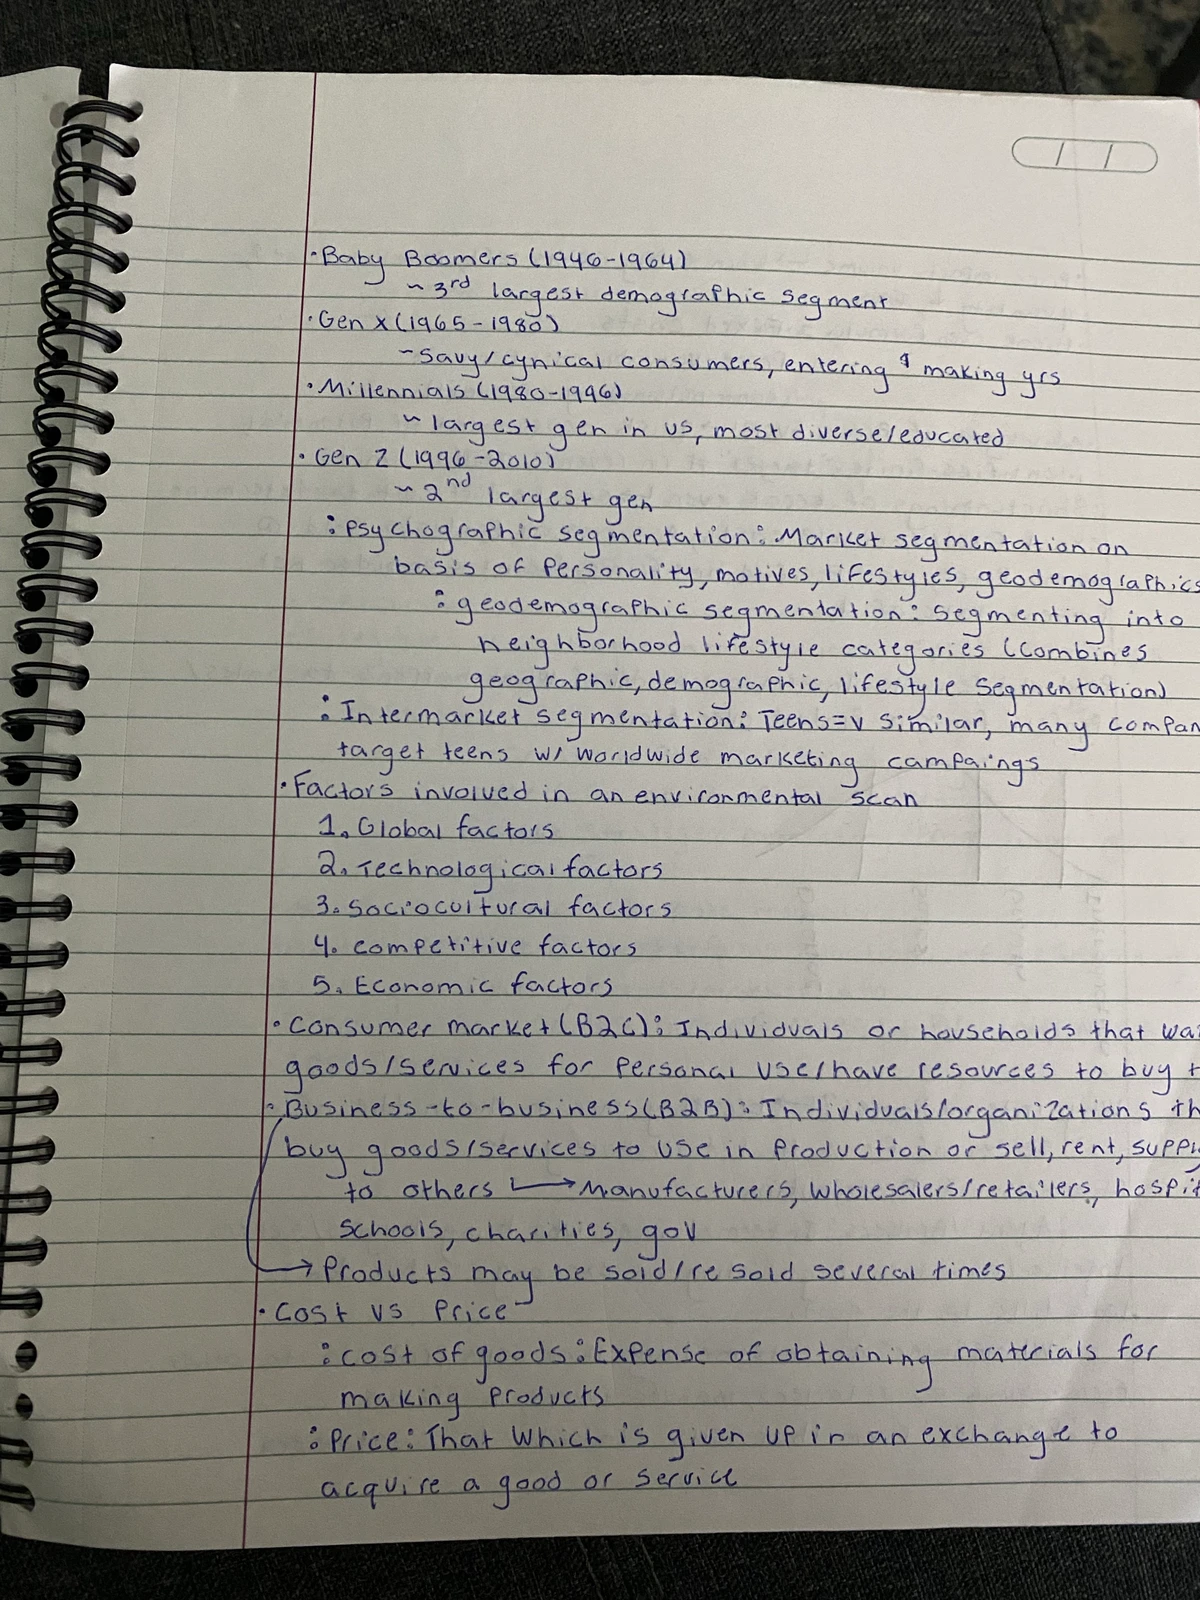 ·Baby Boomers (1946-1964)
~ 3rd largest demographic segment
·Gen X (1965-1980)
~savy/cynical consumers, entering $ making yrs
·Millennials (1980-1996)
~ largest gen in US, most diverse/educated
·Gen Z (1996-2010)
~ 2nd largest gen
:Psychographic segmentation: Market segmentation on
basis of Personality, motives, lifestyles, geodemographics
:geodemographic segmentation: segmenting into
neighborhood lifestyle categories (combines
geographic, demographic, lifestyle segmentation)
:Intermarket segmentation: Teens=v similar, many compan
target teens w/ worldwide marketing campaings
·Factors involved in an environmental scan
1. Global factors
2. Technological factors
3. Sociocultural factors
4. competitive factors
5. Economic factors
·Consumer market (B2C): Individuals or households that wa
goods/services for Personal use/have resources to buy t
·Business-to-business (B2B): Individuals/organizations th
buy goods/services to use in Production or sell, rent, supply
to others → Manufacturers, wholesalers/retailers, hospit
schools, charities, gov
→ Products may be sold/re sold several times
·Cost vs Price
:cost of goods: Expense of obtaining materials for
making Products
:Price: That which is given up in an exchange to
acquire a good or service